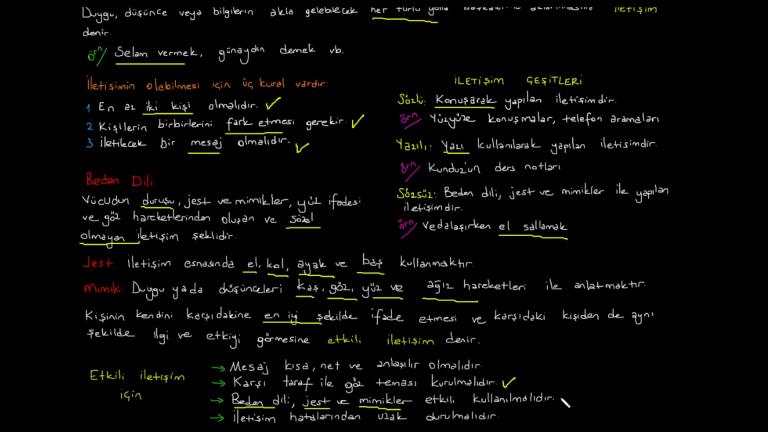 Duygu, düşünce veya bilgilerin akla gelebilecek her türlü yolla başkalarına aktarılmasına iletişim
denir.
örn/ Selam vermek, günaydın demek vb.
İletişimin olabilmesi için üç kural vardır:
1 En az iki kişi olmalıdır.
2 Kişilerin birbirlerini fark etmesi gerekir.
3 İletilecek bir mesaj olmalıdır.
Beden Dili
Vücudun duruşu, jest ve mimikler, yüz ifadesi
ve göz hareketlerinden oluşan ve sözel
olmayan iletişim şeklidir.
İLETİŞİM ÇEŞİTLERİ
Sözlü: Konuşarak yapılan iletişimdir.
örn/ Yüzyüze konuşmalar, telefon aramaları
Yazılı: Yazı kullanılarak yapılan iletişimdir.
örn/ Kunduz'un ders notları
Sözsüz: Beden dili, jest ve mimikler ile yapılan
iletişimdir.
örn/ Vedalaşırken el sallamak
Jest: İletişim esnasında el, kol, ayak ve baş kullanmaktır.
Mimik: Duygu ya da düşünceleri kaş, göz, yüz ve ağız hareketleri ile anlatmaktır.
Kişinin kendini karşıdakine en iyi şekilde ifade etmesi ve karşıdaki kişiden de aynı
şekilde ilgi ve etkiyi görmesine etkili iletişim denir.
Etkili iletişim
için
→ Mesaj kısa, net ve anlaşılır olmalıdır.
→ Karşı taraf ile göz teması kurulmalıdır.
→ Beden dili, jest ve mimikler etkili kullanılmalıdır.
→ İletişim hatalarından uzak durulmalıdır.